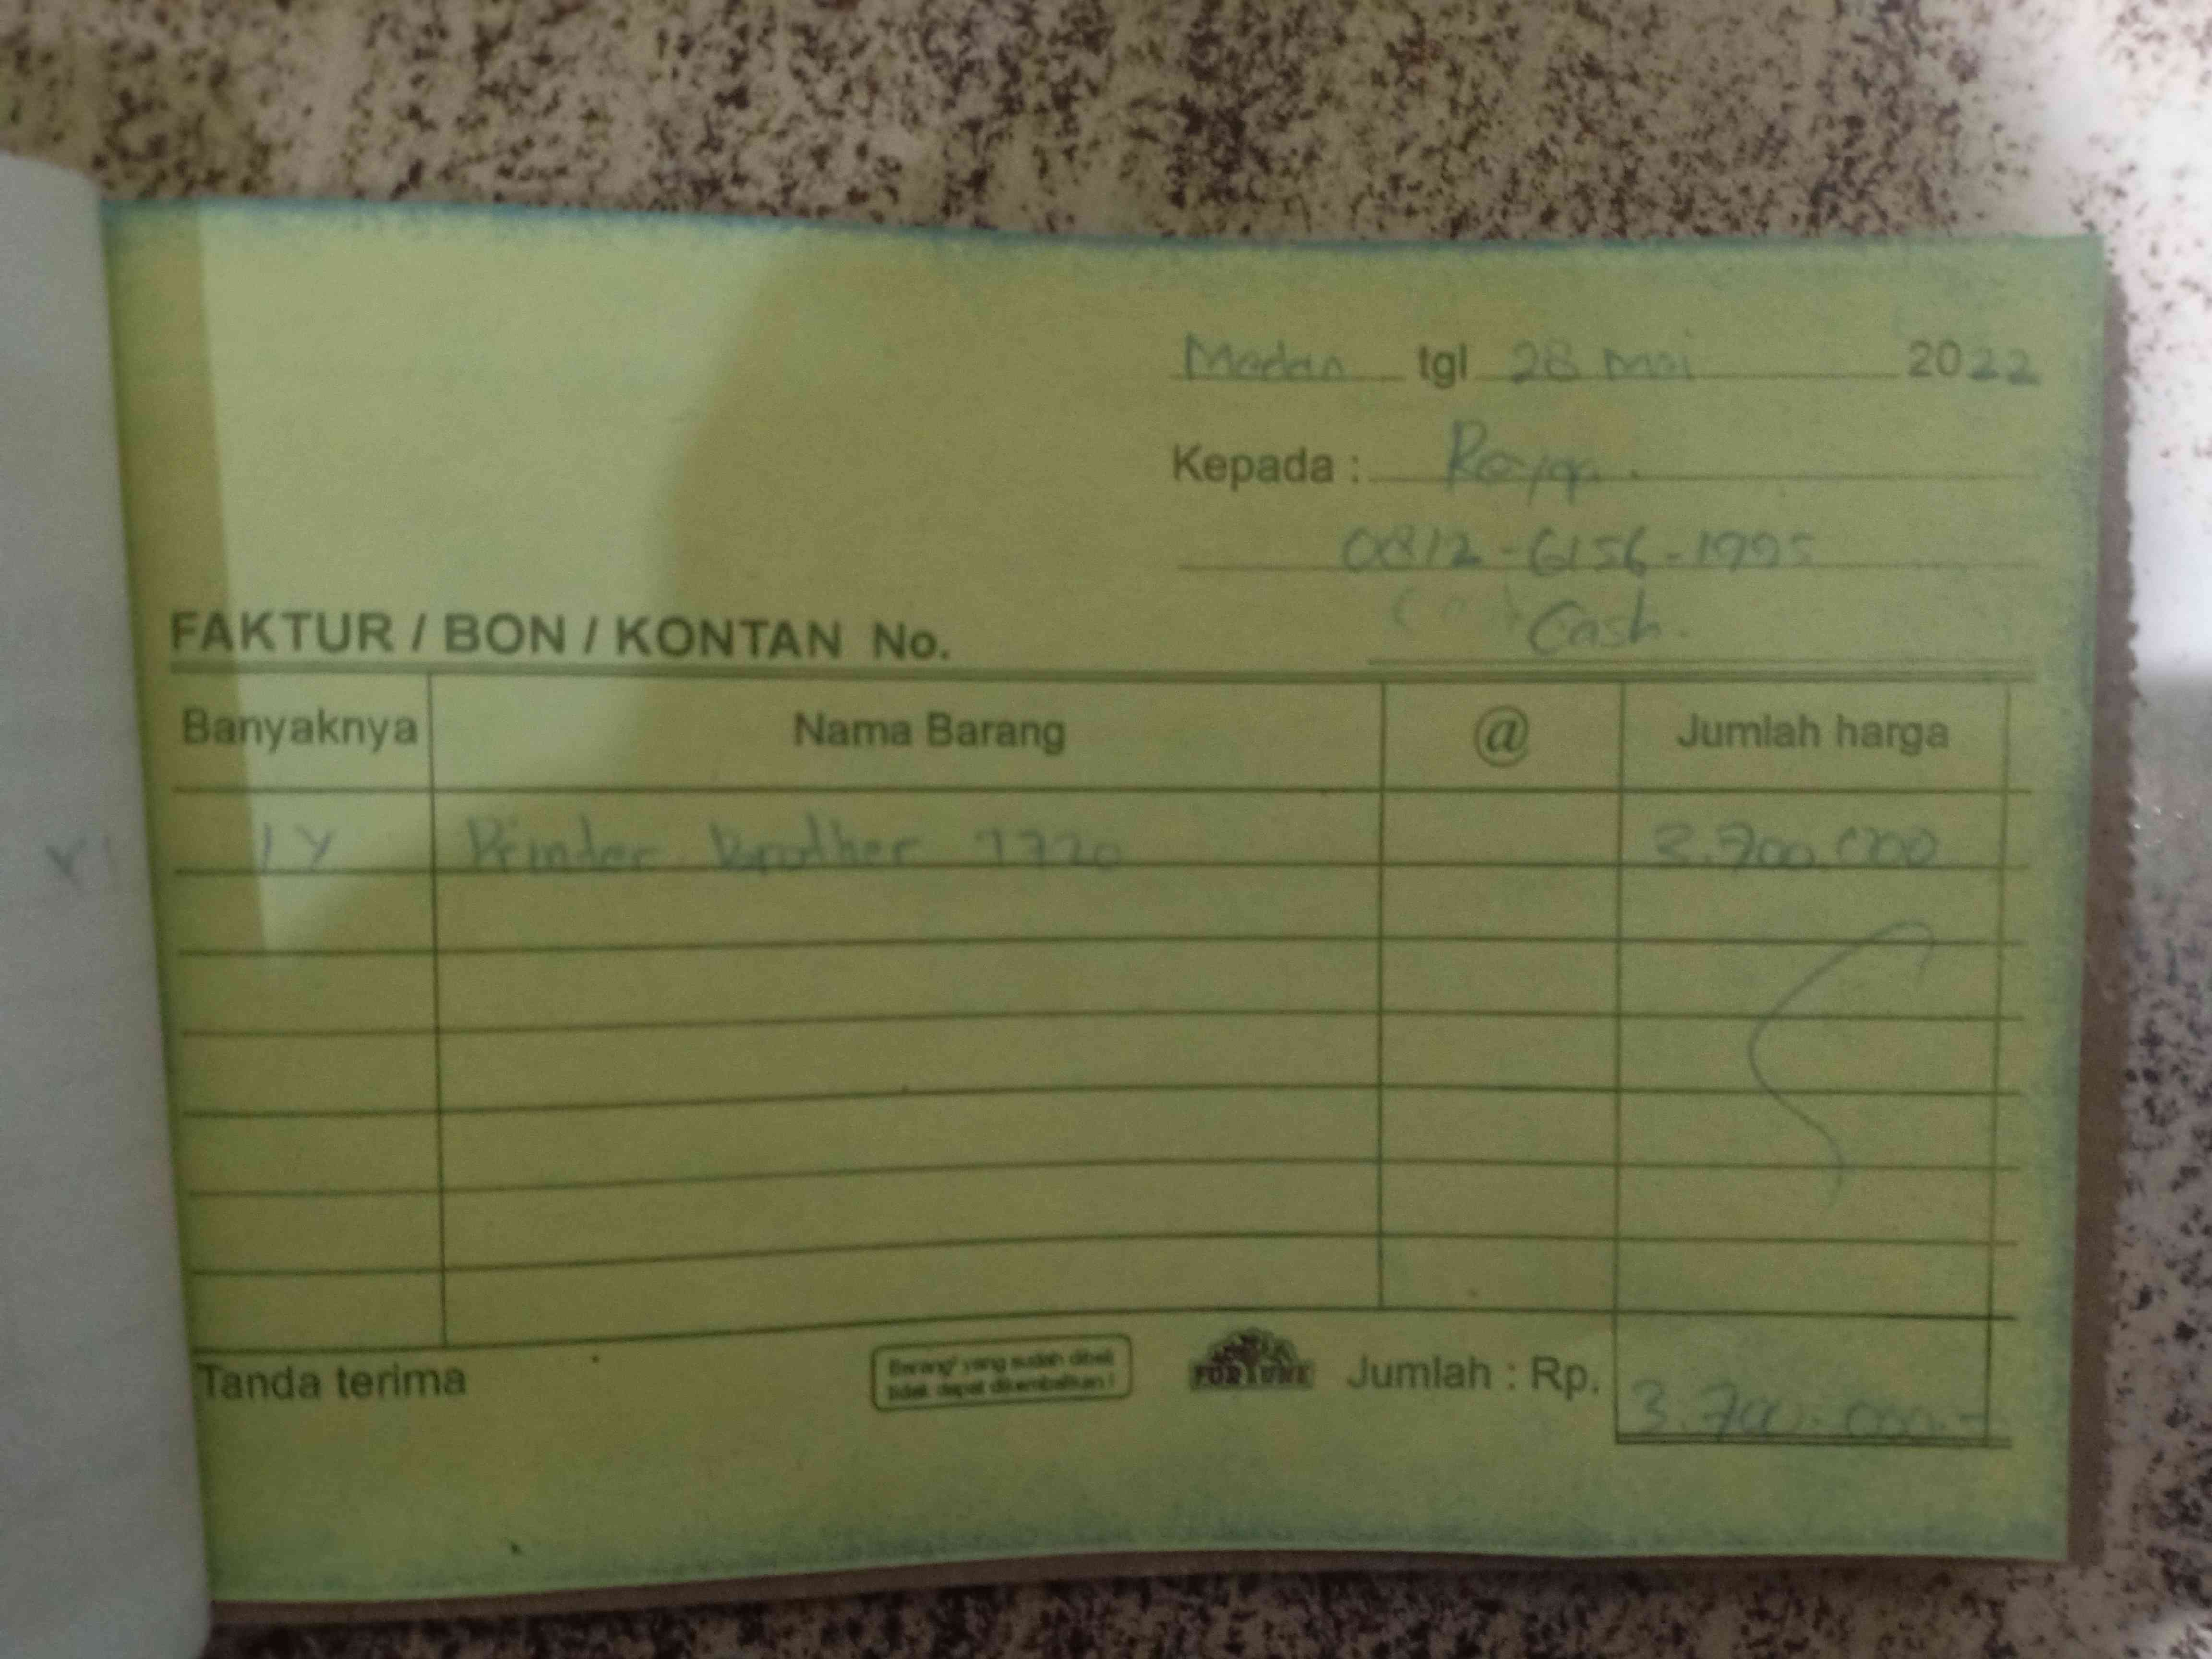 Medan tgl 28 mei 2022
Kepada :
0812-6156-1995
Cash.
FAKTUR / BON / KONTAN No.
Banyaknya Nama Barang @ Jumlah harga
1 Printer Brother 3.700.000
Tanda terima Barang² yang sudah dibeli
tidak dapat dikembalikan !
FORTUNE Jumlah : Rp. 3.700.000.-